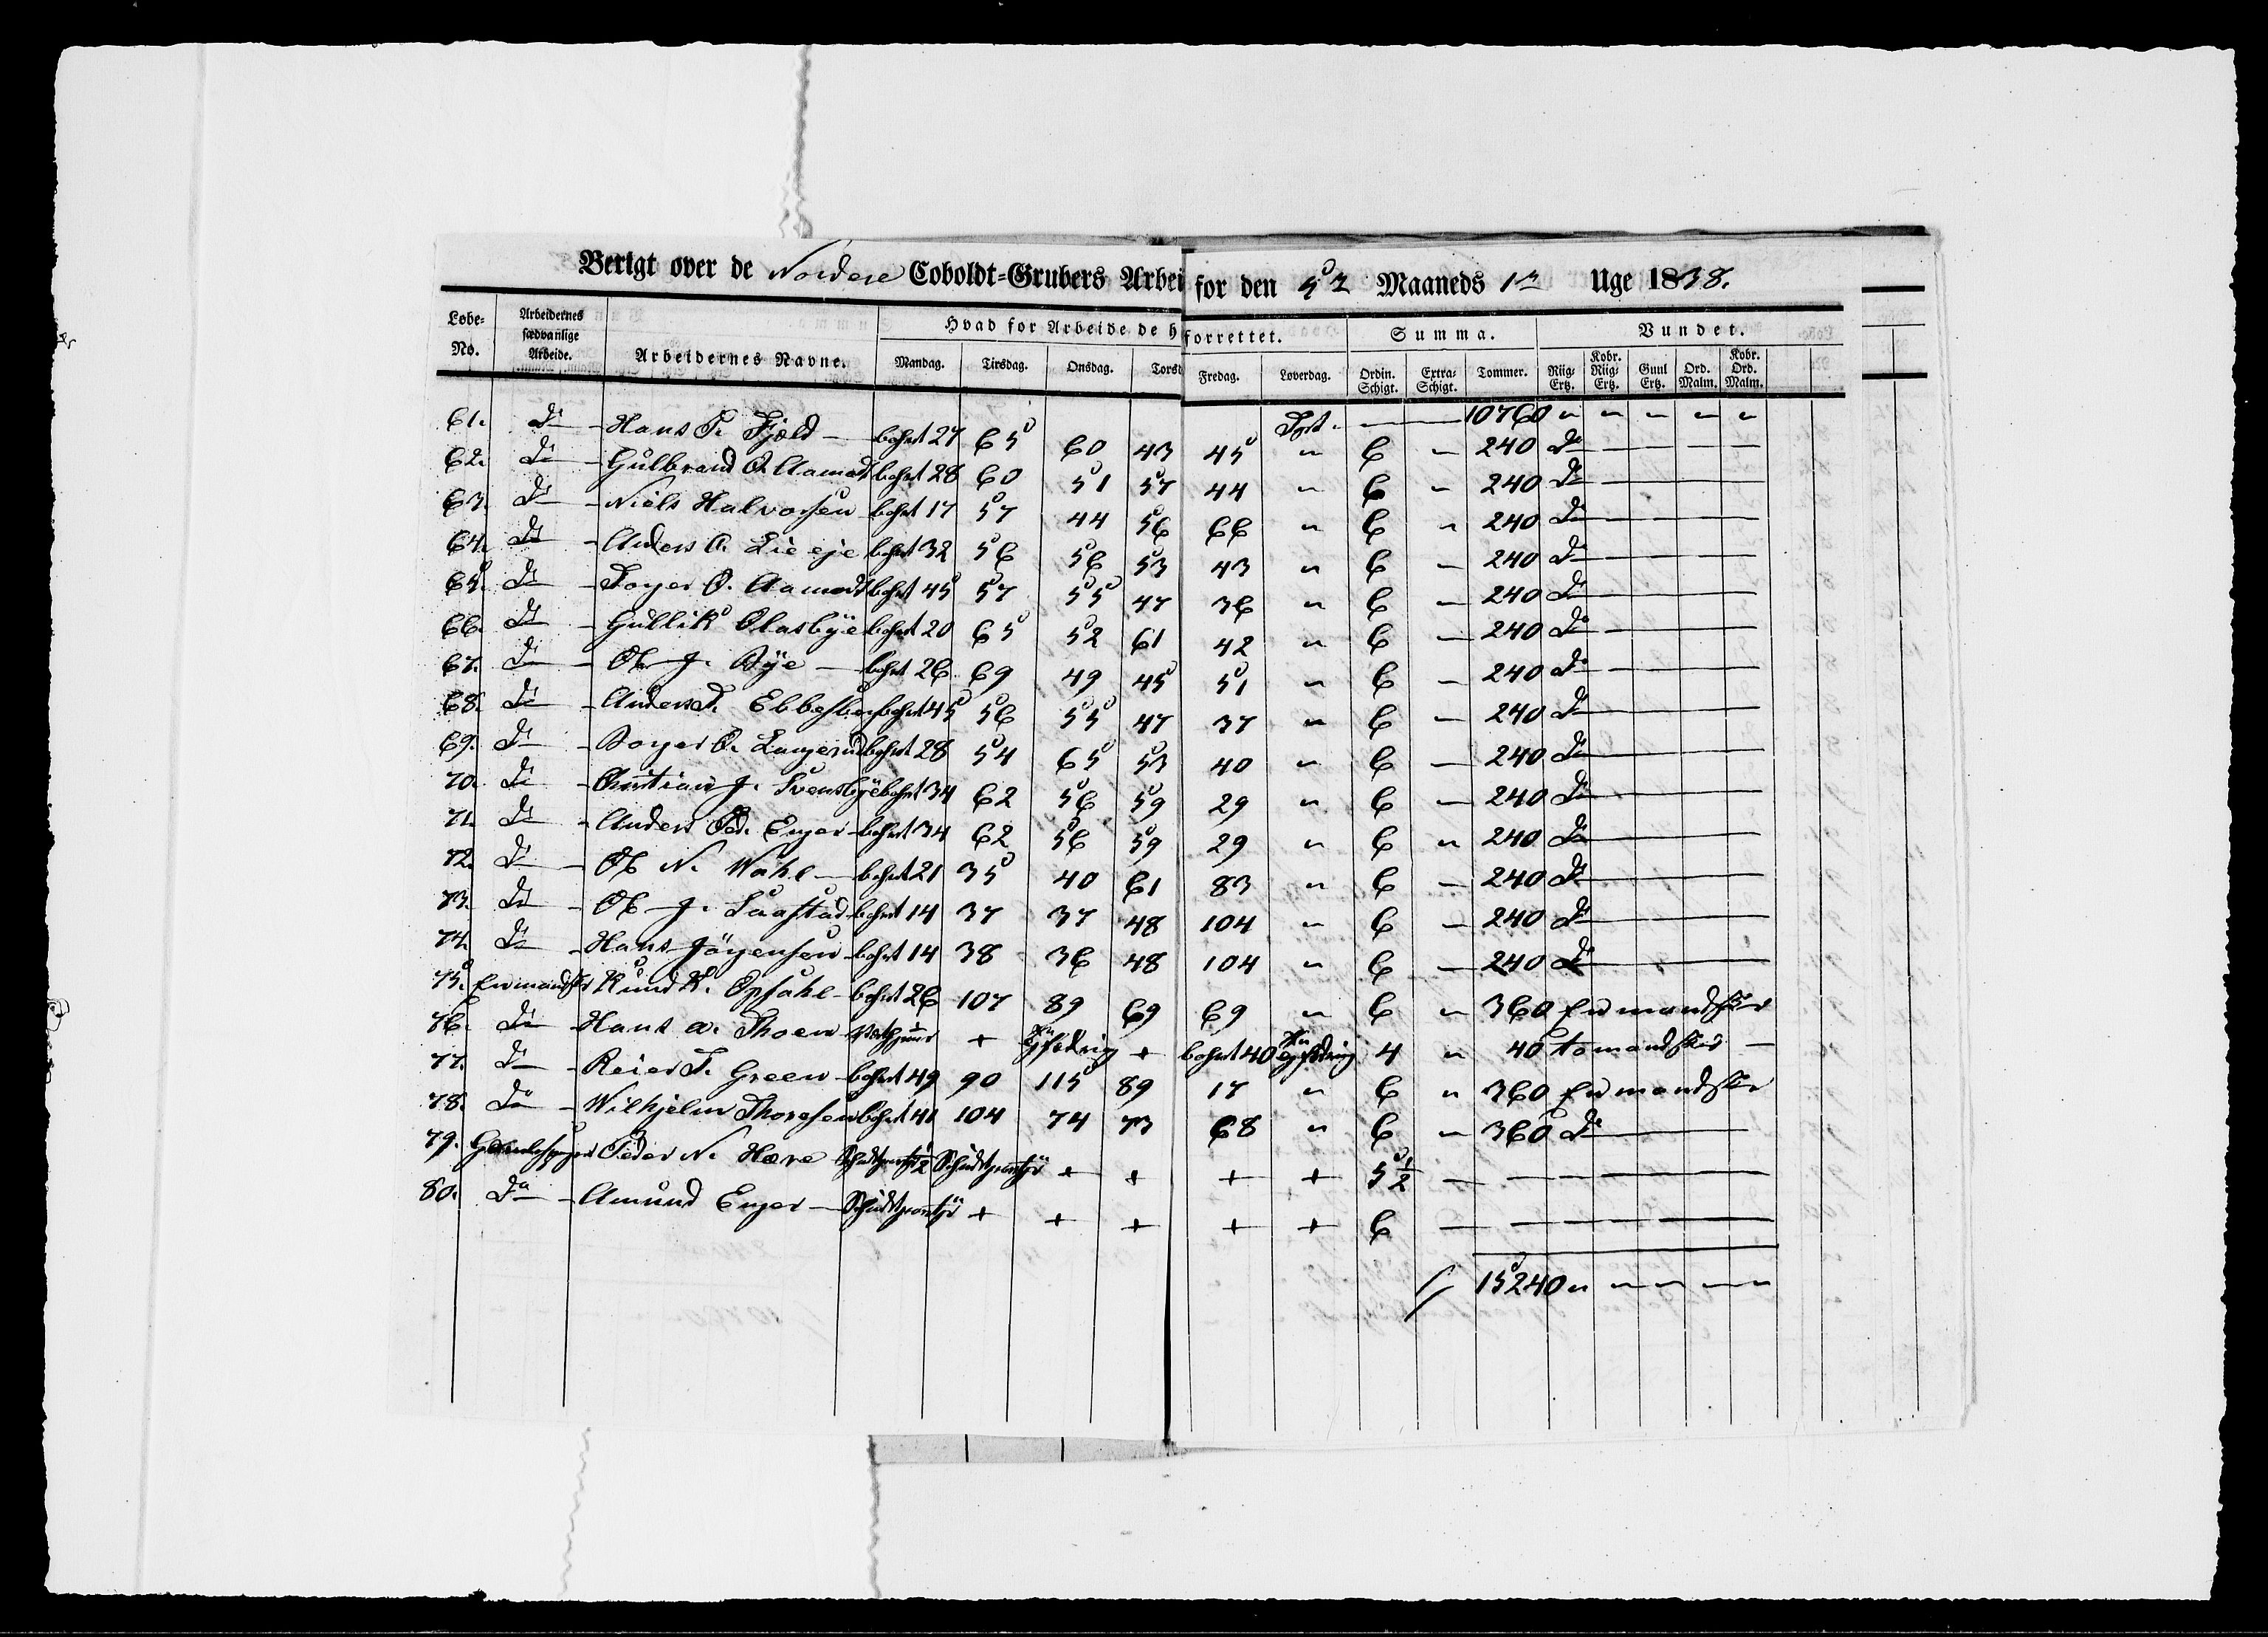 Berigt over de Nordere Coboldt=Grubers Arbei for den 5te Maaneds 1te Uge 1838.
Lobe= No. Arbeidernes sædvanlige Arbeide. Arbeidernes Navne. Hvad for Arbeide de h forrettet. Summa. Vundet.
Mandag. Tirsdag. Onsdag. Torsd Fredag. Løverdag. Ordin. Schigt. Extra= Schigt. Tommer. Riig= Ertz. Kobr. Riig= Ertz. Guul Ertz. Ord. Malm. Kobr. Ord. Malm.
10760 " " " " "
61. Do Hans T. Fjeld bohrt 27 65 60 43 45 " 6 " 240 Do
62. Do Gulbrand O. Aamodt bohrt 28 60 51 57 44 " 6 " 240 Do
63. Do Niels Halvorsen bohrt 17 57 44 56 66 " 6 " 240 Do
64. Do Anders A. Lie eje bohrt 32 56 56 53 43 " 6 " 240 Do
65. Do O. Aamodt bohrt 45 57 55 47 36 " 6 " 240 Do
66. Do Gullik Olasbye bohrt 20 65 52 61 42 " 6 " 240 Do
67. Do Ole J. Bye bohrt 26 69 49 45 51 " 6 " 240 Do
68. Do Anders T. bohrt 45 56 55 47 37 " 6 " 240 Do
69. Do O. Langerud bohrt 28 54 65 53 40 " 6 " 240 Do
70. Do Christian J. Svensbye bohrt 34 62 56 59 29 " 6 " 240 Do
71. Do Anders Ped. Enger bohrt 34 62 56 59 29 " 6 " 240 Do
72. Do Ole N. Wahl bohrt 21 35 40 61 83 " 6 " 240 Do
73. Do Ole J. Saastad bohrt 14 37 37 48 104 " 6 " 240 Do
74. Do Hans Jörgensen bohrt 14 38 36 48 104 " 6 " 240 Do
75. Enmandsbor Knud K. Opsahl bohrt 26 107 89 69 69 " 6 " 360 Enmandsbor
76. Do Hans A. Thoen + + bohrt 40 4 " 40 tomandsbor
77. Do Reier T. Green bohrt 49 90 115 89 17 " 6 " 360 Enmandsbor
78. Do Wilhjelm Thoresen bohrt 41 104 74 73 68 " 6 " 360 Do
79. Peder N. Hære + + + + 5 1/2
80. Do Amund Enger + + + + + 6
15240 " " " " "